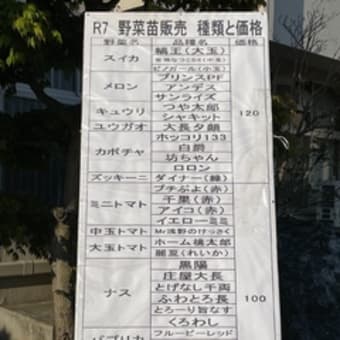 R7 野菜苗販売 種類と価格
野菜名 品種名 価格
スイカ 縞王(大玉)
ピノガール(小玉)
メロン プリンスPF
アンデス
サンライズ
キュウリ つや太郎 120
シャキット
ユウガオ 大長夕顔
カボチャ ホッコリ133
白爵
坊ちゃん
ロロン
ズッキーニ ダイナー(緑)
ミニトマト プチぷよ(赤)
千果(赤)
アイコ(赤)
イエローミミ
中玉トマト Mr浅野のけっさく
大玉トマト ホーム桃太郎
麗夏(れいか)
ナス 黒陽
庄屋大長
とげなし千両
ふわとろ長 100
とろーり旨なす
くろわし
パプリカ フルーピーレッド